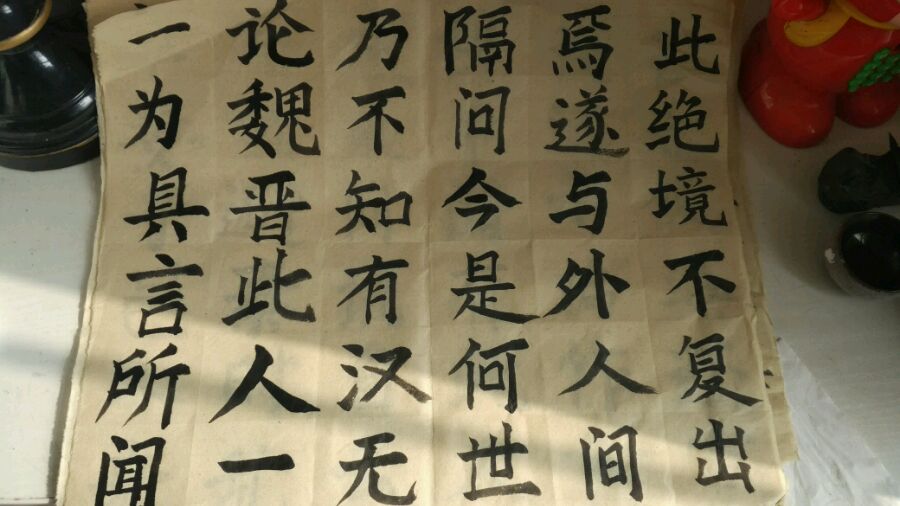 此绝境不复出
焉遂与外人间
隔问今是何世
乃不知有汉无
论魏晋此人一
一为具言所闻